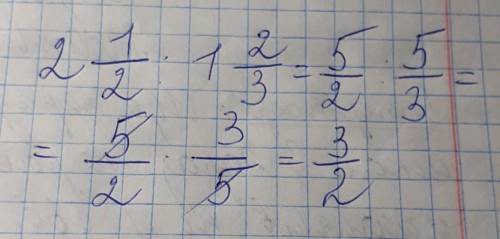 2 1/2 · 1 2/3 = 5/2 · 5/3 =
= 5/2 · 3/5 = 3/2